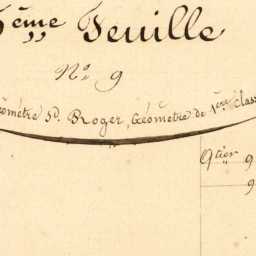 5ème Feuille
No 9
Géomètre Sd. Roger, Géomètre de 1ère Class
Qtier 9
9